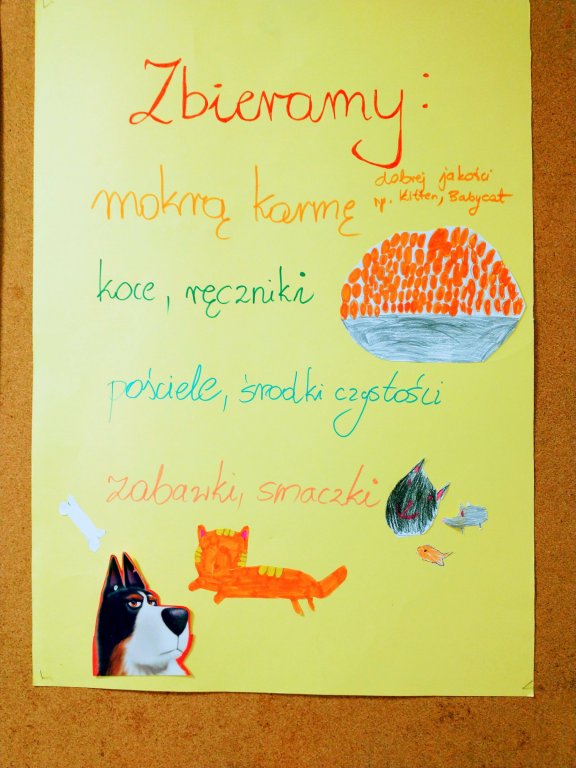 Zbieramy:
mokrą karmę
dobrej jakości
np. Kitten, Babycat
koce, ręczniki
pościele, środki czystości
zabawki, smaczki